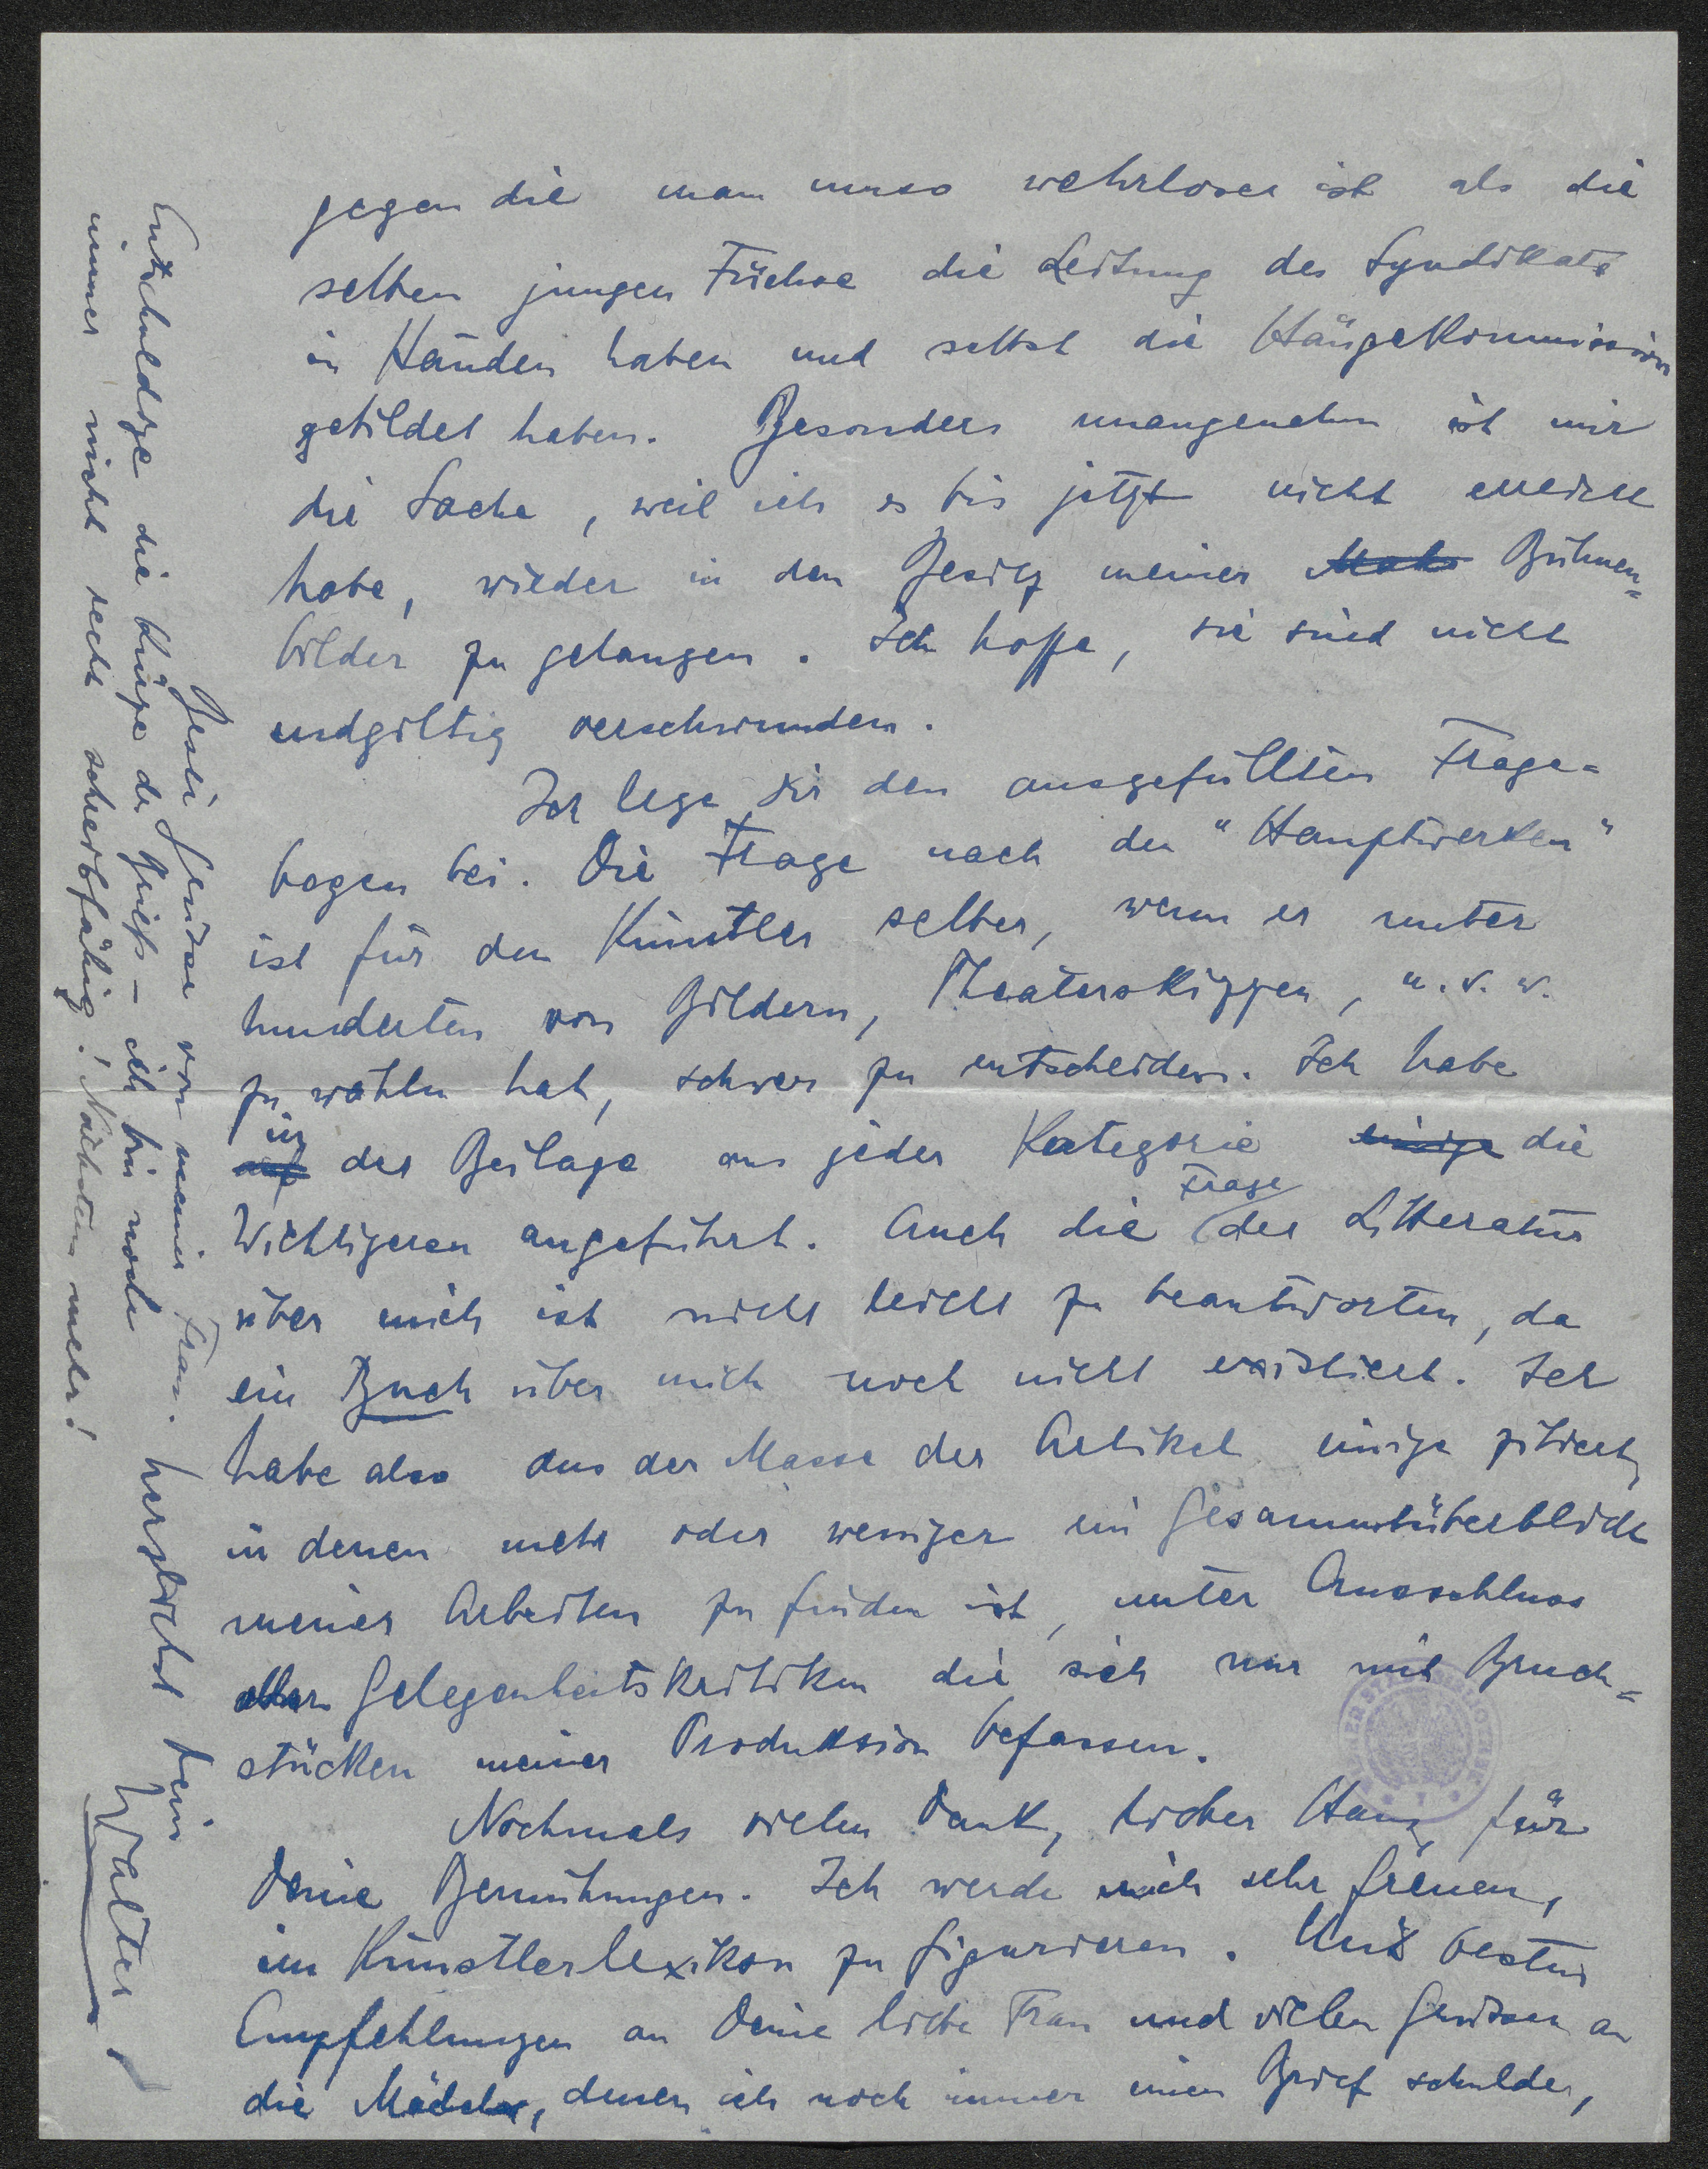 gegen die man umso wehrloser ist als die
selben jungen Füchse die Leitung des Syndikats
in Händen haben und selbst die Hängekommission
gebildet haben. Besonders unangenehm ist mir
die Sache, weil ich es bis jetzt nicht erreicht
habe, wieder in den Besitz meiner Bühnen=
bilder zu gelangen. Ich hoffe, sie sind nicht
endgiltig verschwunden.
Ich lege dir den ausgefüllten Frage=
bogen bei. Die Frage nach den "Hauptwerken"
ist für den Künstler selber, wenn er unter
hunderten von Bildern, Theaterskizzen, u.s.w.
zu wählen hat, schwer zu entscheiden. Ich habe
in der Beilage aus jeder Kategorie einige die
Wichtigeren angeführt. Auch die Frage der Litteratur
über mich ist nicht leicht zu beantworten, da
ein Buch über mich noch nicht existiert. Ich
habe also aus der Masse der Artikel einige zitiert,
in denen mehr oder weniger ein Gesammtüberblick
meiner Arbeiten zu finden ist, unter Ausschluss
aller Gelegenheitskritiken die sich nur mit Bruch=
stücken meiner Produktion befassen.
Nochmals vielen Dank, lieber Hans, für
Deine Bemühungen. Ich werde mich sehr freuen,
im Künstlerlexikon zu figurieren. Mit besten
Empfehlungen an Deine liebe Frau und vielen Grüssen an
die Mädels, denen ich noch immer einen Brief schulde,
Beste Grüsse von meiner Frau. herzlichst Dein
Walter
Entschuldige die Kürze des Briefs – ich bin noch
immer nicht recht schreibfähig! Nächstens mehr!